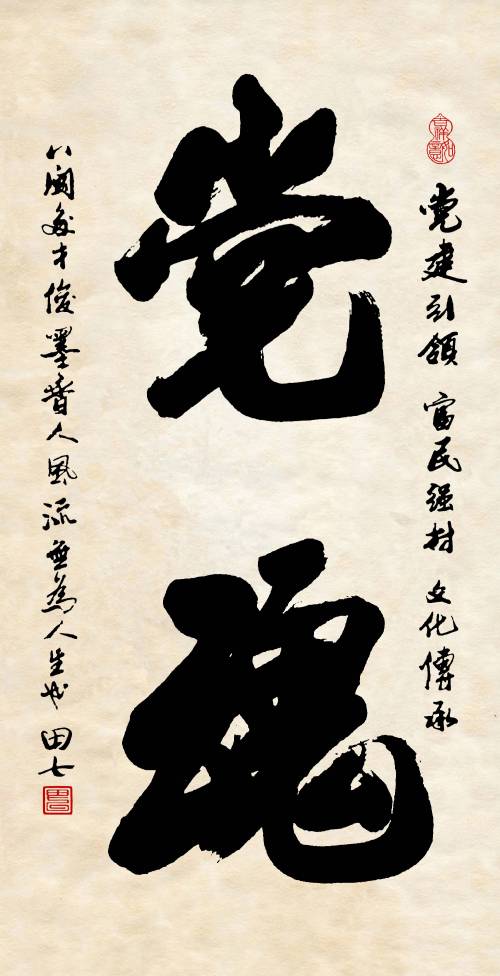 党建引领 富民强村 文化傳承
党魂
八闽多才俊墨香人風流無為人生 田七